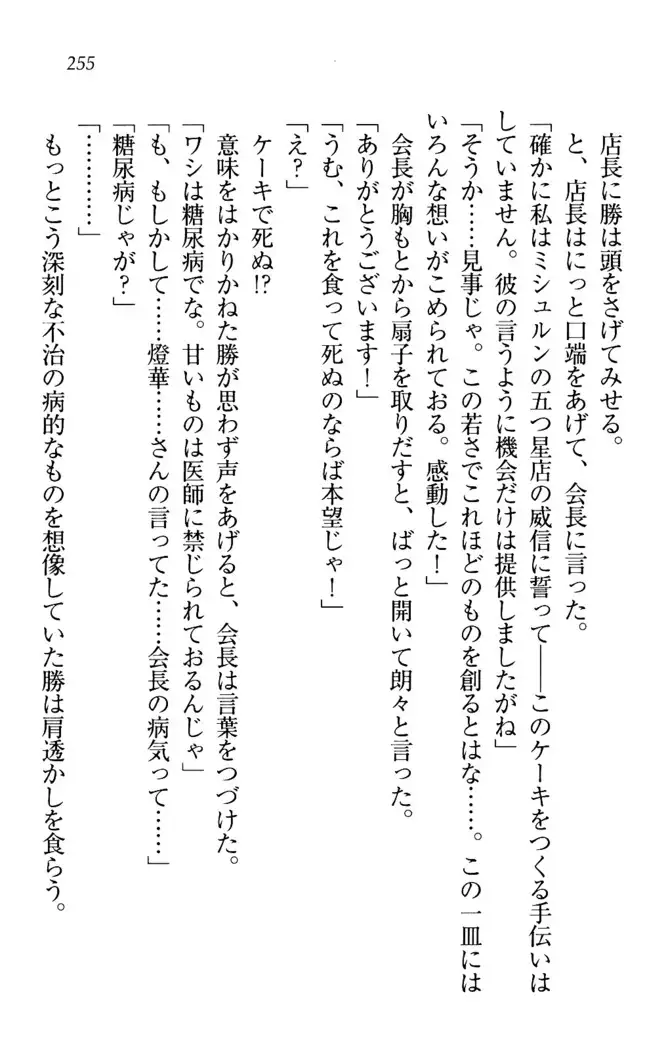 255
店長に勝は頭をさげてみせる。
と、店長はにっと口端をあげて、会長に言った。
「確かに私はミシュルンの五つ星店の威信に誓って――このケーキをつくる手伝いは
していません。彼の言うように機会だけは提供しましたがね」
「そうか……見事じゃ。この若さでこれほどのものを創るとはな……。この一皿には
いろんな想いがこめられておる。感動した！」
会長が胸もとから扇子を取りだすと、ばっと開いて朗々と言った。
「ありがとうございます！」
「うむ、これを食って死ぬのならば本望じゃ！」
「え？」
ケーキで死ぬ!?
意味をはかりかねた勝が思わず声をあげると、会長は言葉をつづけた。
「ワシは糖尿病でな。甘いものは医師に禁じられておるんじゃ」
「も、もしかして……燈華……さんの言ってた……会長の病気って……」
「糖尿病じゃが？」
「…………」
もっとこう深刻な不治の病的なものを想像していた勝は肩透かしを食らう。